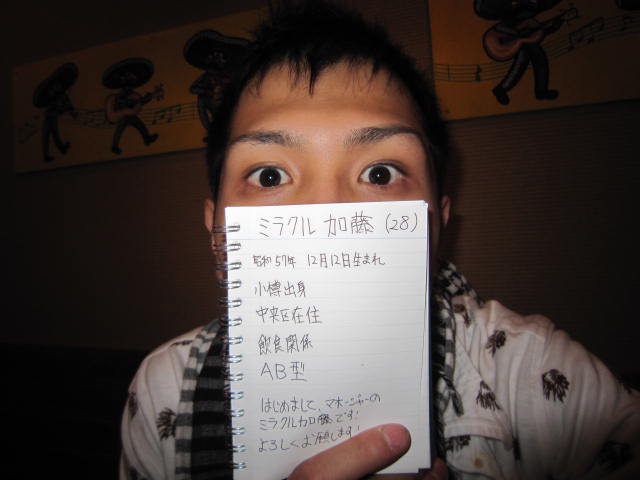 ミラクル 加藤 (28)
昭和57年 12月12日生まれ
小樽出身
中央区在住
飲食関係
AB型
はじめまして、マネージャーの
ミラクル加藤です!
よろしくお願します!